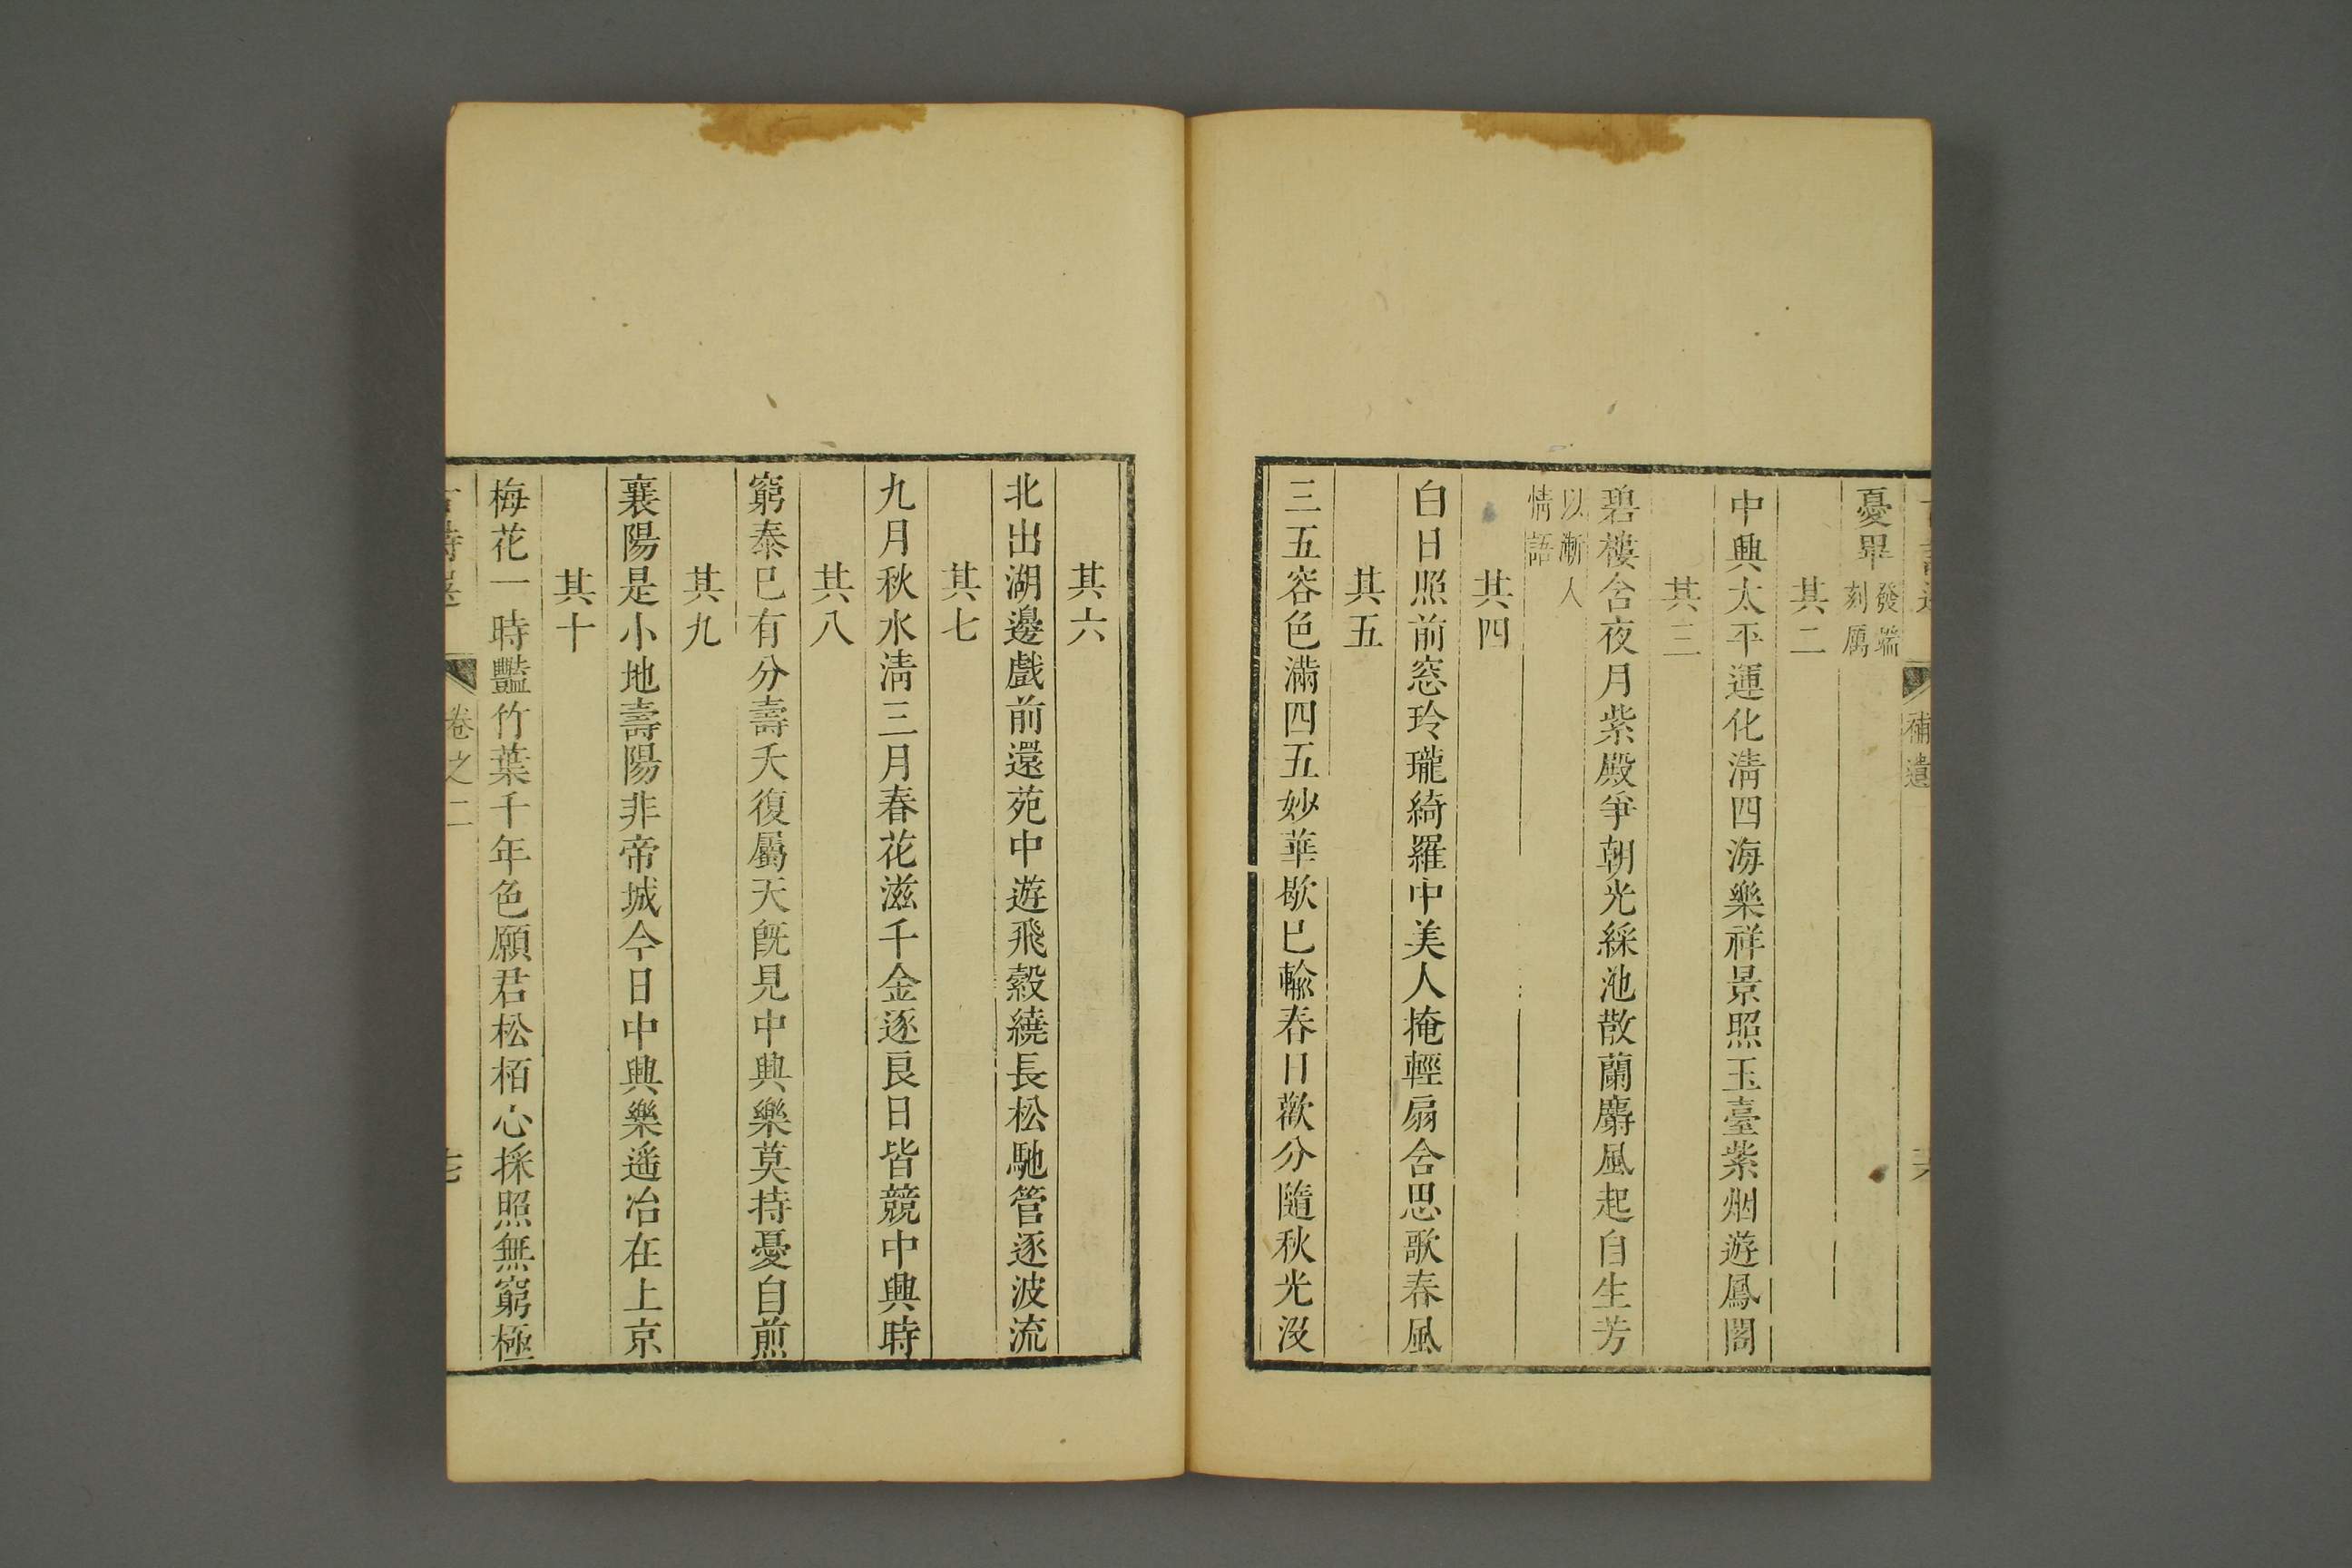 補遺
憂畢發端
刻厲
其二
中興太平運化清四海樂祥景照玉臺紫烟遊鳳閣
其三
碧樓含夜月紫殿爭朝光綵池散蘭麝風起自生芳
以漸人
情語
其四
白日照前窓玲瓏綺羅中美人掩輕扇含思歌春風
其五
三五容色滿四五妙華歇已輸春日歡分隨秋光沒
其六
北出湖邊戲前還苑中遊飛縠繞長松馳管逐波流
其七
九月秋水清三月春花滋千金逐良日皆競中興時
其八
窮泰已有分壽夭復屬天旣見中興樂莫持憂自煎
其九
襄陽是小地壽陽非帝城今日中興樂遙冶在上京
其十
梅花一時豔竹葉千年色願君松栢心採照無窮極
卷之二